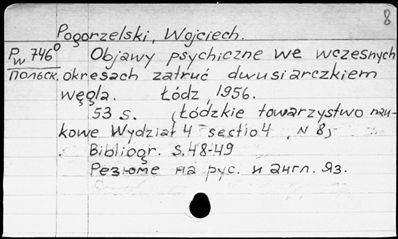 8
Pogorzelski, Wojciech.
Pw 746⁰ Objawy psychiczne we wczesnych
Польск. okresach zatruć dwusiarczkiem
węgla. Łódz, 1956.
53 s. (Łódzkie towarzystwo nau-
kowe Wydział 4 sectio 4, N 8)
Bibliogr. S. 48-49
Резюме на рус. и англ. яз.